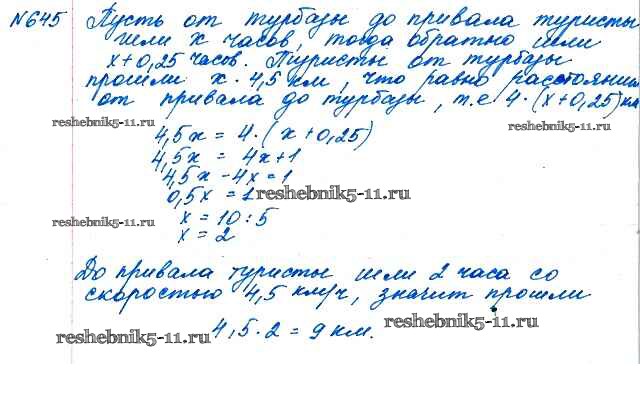 №645 Пусть от турбазы до привала туристы
шли x часов, тогда обратно шли
x+0,25 часов. Туристы от турбазы
прошли x · 4,5 км, что равно расстоянию
от привала до турбазы, т.е 4 · (x+0,25) км
reshebnik5-11.ru reshebnik5-11.ru
4,5x = 4 · (x+0,25)
4,5x = 4x+1
4,5x - 4x = 1
0,5x = 1 reshebnik5-11.ru
reshebnik5-11.ru x = 10 : 5
x = 2
До привала туристы шли 2 часа со
скоростью 4,5 км/ч, значит прошли
reshebnik5-11.ru 4,5 · 2 = 9 км. reshebnik5-11.ru